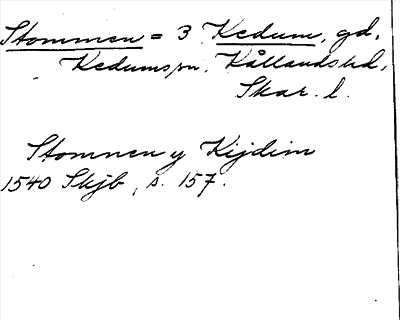 Stommen = 3 Kedum, gd,
Kedums sn, Kållands hd,
Skar. l.
Stomnen y Kijdim
1540 Skjb, s. 157.